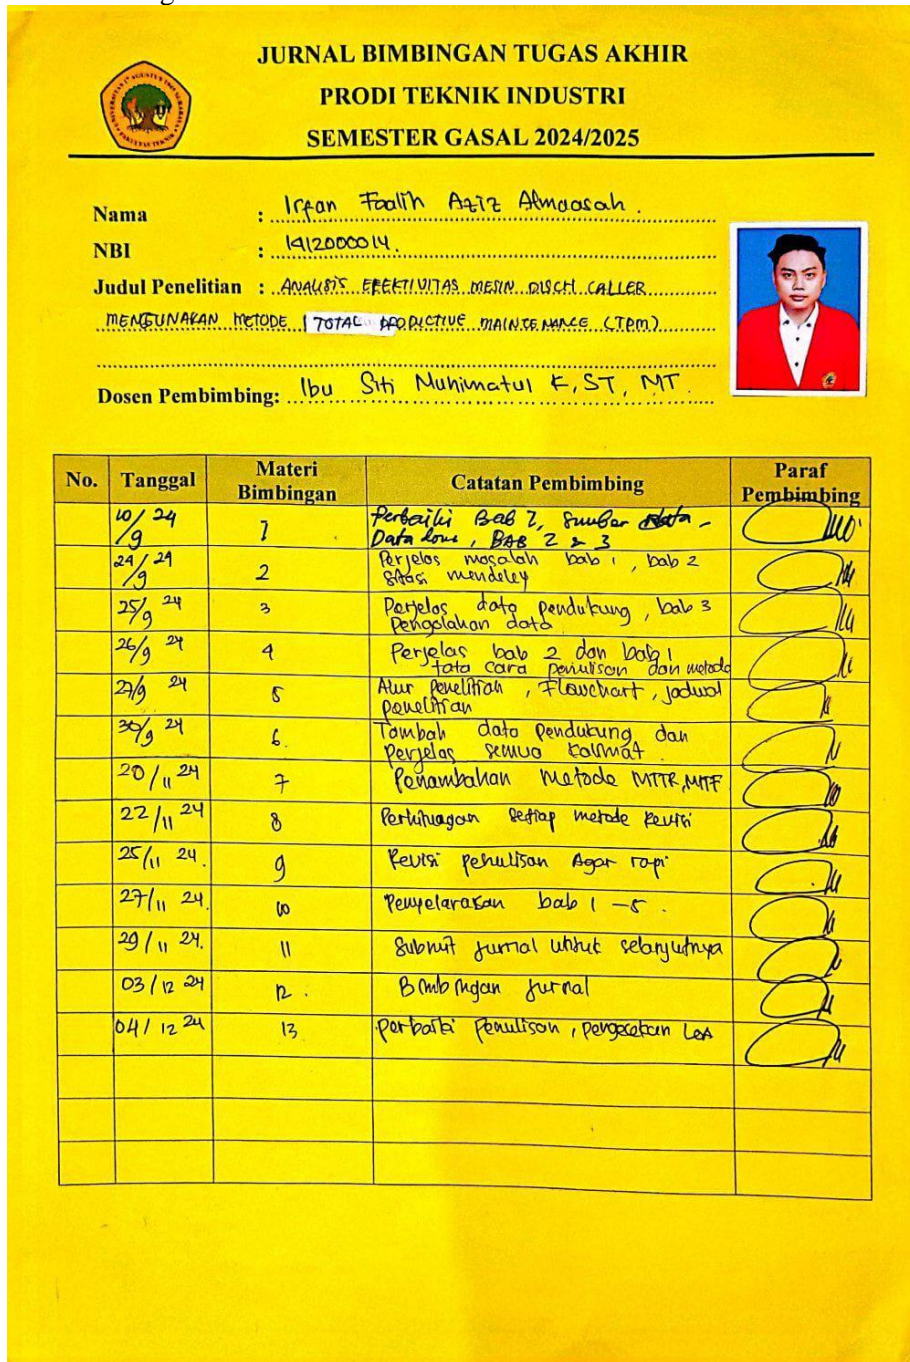 JURNAL BIMBINGAN TUGAS AKHIR
PRODI TEKNIK INDUSTRI
SEMESTER GASAL 2024/2025
Nama : Irfan Faalih Aziz Almaasah.
NBI : 1412000014.
Judul Penelitian : ANALISIS EFEKTIVITAS MESIN DISCH CALLER
MENGGUNAKAN METODE TOTAL PRODUCTIVE MAINTENANCE (TPM)
Dosen Pembimbing: Ibu Siti Muhimatul K, ST, MT.
No. Tanggal Materi Bimbingan Catatan Pembimbing Paraf Pembimbing
10/9 24 1 Perbaiki Bab 1, Sumber
Data , BAB 2 & 3
24/9 24 2 Perjelas masalah bab 1, bab 2
sitasi mendeley
25/9 24 3 Perjelas data pendukung, bab 3
Pengolahan data
26/9 24 4 Perjelas bab 2 dan bab 1
tata cara penulisan dan metode
27/9 24 5 Alur penelitian, Flowchart, jadwal
penelitian
30/9 24 6. Tambah data pendukung dan
perjelas semua kalimat.
20/11 24 7 Penambahan Metode MTTR, MTTF
22/11 24 8 Perhitungan setiap metode revisi
25/11 24. 9 Revisi penulisan Agar rapi
27/11 24. 10 Penyelarasan bab 1 - 5.
29/11 24. 11 Submit jurnal untuk selanjutnya
03/12 24 12. Bimbingan jurnal
04/12 24 13 perbaiki penulisan, pengecekan LOA